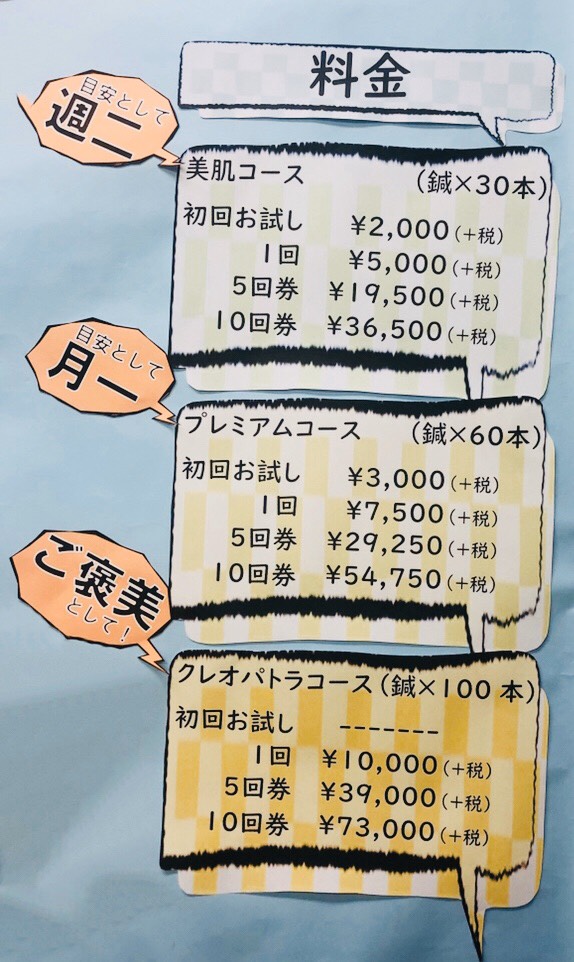 料金
目安として
週二
美肌コース (鍼×30本)
初回お試し ¥2,000(+税)
1回 ¥5,000(+税)
5回券 ¥19,500(+税)
10回券 ¥36,500(+税)
目安として
月一
プレミアムコース (鍼×60本)
初回お試し ¥3,000(+税)
1回 ¥7,500(+税)
5回券 ¥29,250(+税)
10回券 ¥54,750(+税)
ご褒美
として!
クレオパトラコース(鍼×100本)
初回お試し -------
1回 ¥10,000(+税)
5回券 ¥39,000(+税)
10回券 ¥73,000(+税)